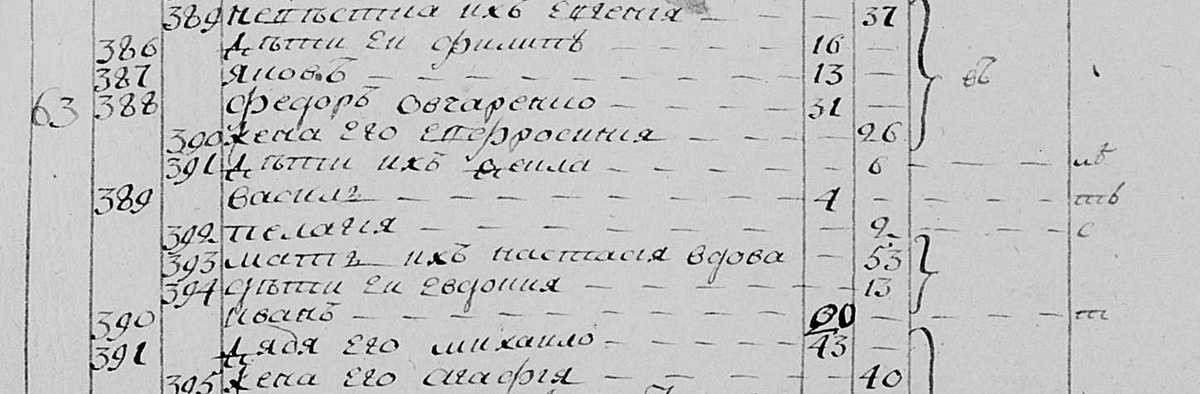 389 невѣстка ихъ Евгенія — — — 37
386 Дѣти Еи филипъ — — — 16 —
387 яковъ — — — 13 — въ
63 388 федоръ овчаренко — — — 31 —
390 жена Его Ефросинія — — — 26
391 Дѣти ихъ — — — 6 — — —
389 василъ — — — 4 — — —
392 пелагія — — — 2 — — — с
393 мати ихъ настасія вдова — 53
394 дѣти Еи Евдокия — — — 13
390 иванъ — — — — — — т
391 Дядя Его михайло — — — 43 —
395 жена Его агафгя — — — 40